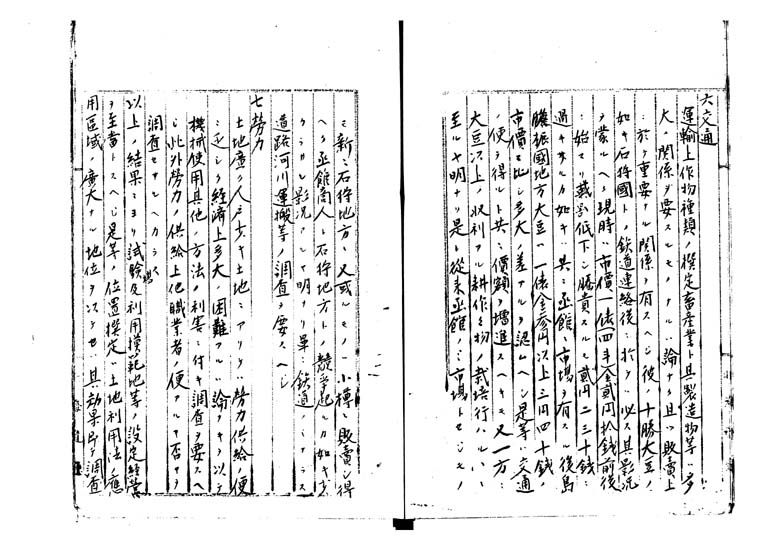 六交通
運輸上作物種類ノ撰定畜産業ト其製造物等ハ多
大ノ関係ヲ要スルモノナルハ論ナキ且ツ販賣上
ニ於テ重要ナル関係ヲ有スヘシ彼ノ十勝大豆ノ
如キ石狩國トノ鉄道連絡後ニ於テハ必ス其影況
ヲ蒙ルヘシ現時ノ市價一俵四斗金貳円拾錢前後
ニ始マリ最低下ニ騰貴スルモ貳円二三十錢ニ
過キサルカ如キハ共ニ函館ノ市場ヲ有スル後島
膽振國地方大豆ハ一俵金参円以上三円四十錢ノ
市價ニ比シ多大ノ差アルヲ認ムヘシ是等ハ交通
ノ便ヲ得ルト共ニ價額ノ増進スヘキモ又一方ニ
大豆以上ノ収利アル耕作物ノ栽培行ハルハニ
至ルヤ明ナリ是レ従来函館ノミ市場トセシモノ
ニ新ニ石狩地方ニ又或ルモノハ小樽ニ販賣シ得
ヘク函館商人ト石狩地方トノ競爭起ルカ如キ多
クラカル影況アルヤ明ナリ單ニ鉄道ノミナラス
道路河川運搬等ノ調査ヲ要スヘシ
七勞力
土地廣ク人ニ乏キ土地ニアリテハ勞力供給ノ便
ニ乏シク経濟上多大ノ困難アルハ論ナキヲ以テ
機械使用其他ノ方法ノ利害ニ付キ調査ヲ要スヘ
シ此外勞力ノ供給上他職業者ノ便アルヤ否ヤヲ
調査セサルヘカラス
以上ノ結果ニヨリ試驗及利用模範地等ノ設定経営
ヲ至當トスヘシ是等ノ位置撰定ハ土地利用法ノ應
用區域ノ廣大ナル地位ヲ以テセハ其効果即チ調査